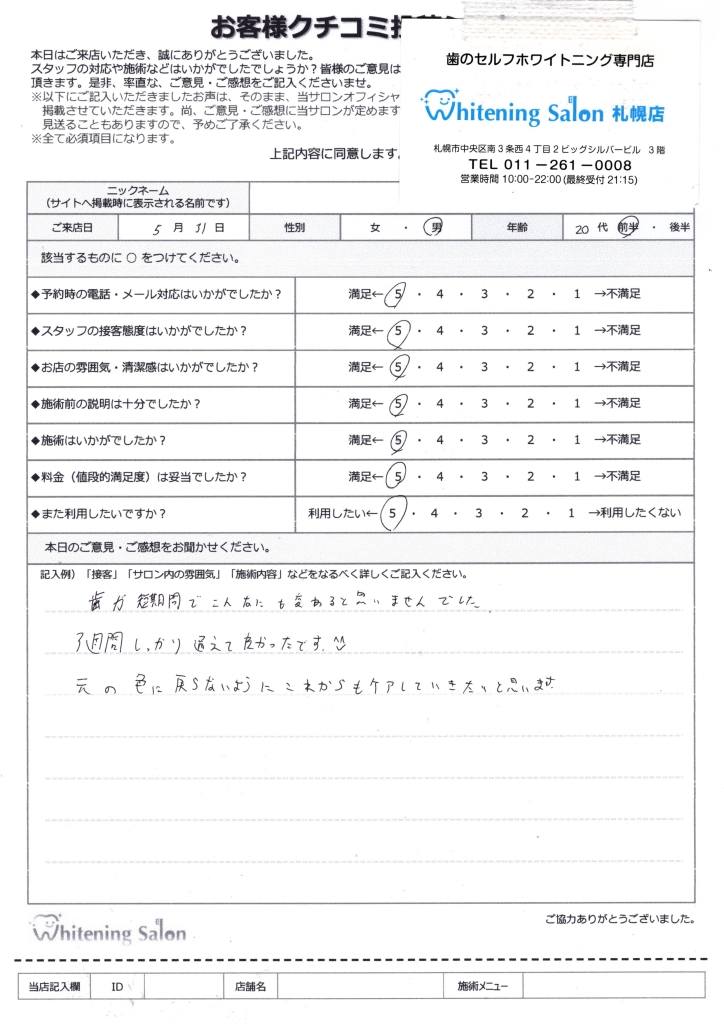 お客様クチコミ
本日はご来店いただき、誠にありがとうございました。
スタッフの対応や施術などはいかがでしたでしょうか？皆様のご意見は
頂きます。是非、率直な、ご意見・ご感想をご記入くださいませ。
※以下にご記入いただきましたお声は、そのまま、当サロンオフィシャ
掲載させていただきます。尚、ご意見・ご感想に当サロンが定めます
見送ることもありますので、予めご了承ください。
※全て必須項目になります。
上記内容に同意します。
歯のセルフホワイトニング専門店
Whitening Salon 札幌店
札幌市中央区南3条西4丁目2ビッグシルバービル 3階
TEL 011－261－0008
営業時間 10:00-22:00(最終受付 21:15)
ニックネーム
（サイトへ掲載時に表示される名前です）
ご来店日 5 月 31 日 性別 女 ・ 男 年齢 20 代 前半 ・ 後半
該当するものに ○ をつけてください。
◆予約時の電話・メール対応はいかがでしたか？ 満足← 5 ・ 4 ・ 3 ・ 2 ・ 1 →不満足
◆スタッフの接客態度はいかがでしたか？ 満足← 5 ・ 4 ・ 3 ・ 2 ・ 1 →不満足
◆お店の雰囲気・清潔感はいかがでしたか？ 満足← 5 ・ 4 ・ 3 ・ 2 ・ 1 →不満足
◆施術前の説明は十分でしたか？ 満足← 5 ・ 4 ・ 3 ・ 2 ・ 1 →不満足
◆施術はいかがでしたか？ 満足← 5 ・ 4 ・ 3 ・ 2 ・ 1 →不満足
◆料金（値段的満足度）は妥当でしたか？ 満足← 5 ・ 4 ・ 3 ・ 2 ・ 1 →不満足
◆また利用したいですか？ 利用したい← 5 ・ 4 ・ 3 ・ 2 ・ 1 →利用したくない
本日のご意見・ご感想をお聞かせください。
記入例）「接客」「サロン内の雰囲気」「施術内容」などをなるべく詳しくご記入ください。
歯が短期間でこんなにも変わると思いませんでした。
週間しっかり通えて良かったです。
元の色に戻らないようにこれからもケアしていきたいと思います。
ご協力ありがとうございました。
Whitening Salon
当店記入欄 ID 店舗名 施術メニュー